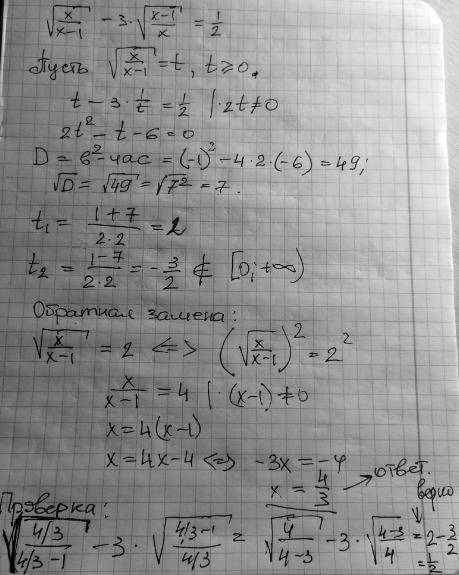 √(x/(x-1)) - 3·√((x-1)/x) = 1/2
Пусть √(x/(x-1)) = t, t ≥ 0.
t - 3·1/t = 1/2 |·2t ≠ 0
2t² - t - 6 = 0
D = b² - 4ac = (-1)² - 4·2·(-6) = 49;
√D = √49 = √7² = 7.
t₁ = (1+7)/(2·2) = 2
t₂ = (1-7)/(2·2) = -3/2 ∉ [0; +∞)
Обратная замена:
√(x/(x-1)) = 2 <=> (√(x/(x-1)))² = 2²
x/(x-1) = 4 |·(x-1) ≠ 0
x = 4(x-1)
x = 4x - 4 <=> -3x = -4
x = 4/3 → ответ.
Проверка: верно
√((4/3)/(4/3 - 1)) - 3·√((4/3 - 1)/(4/3)) = √(4/(4-3)) - 3·√((4-3)/4) = 2 - 3/2
= 1/2